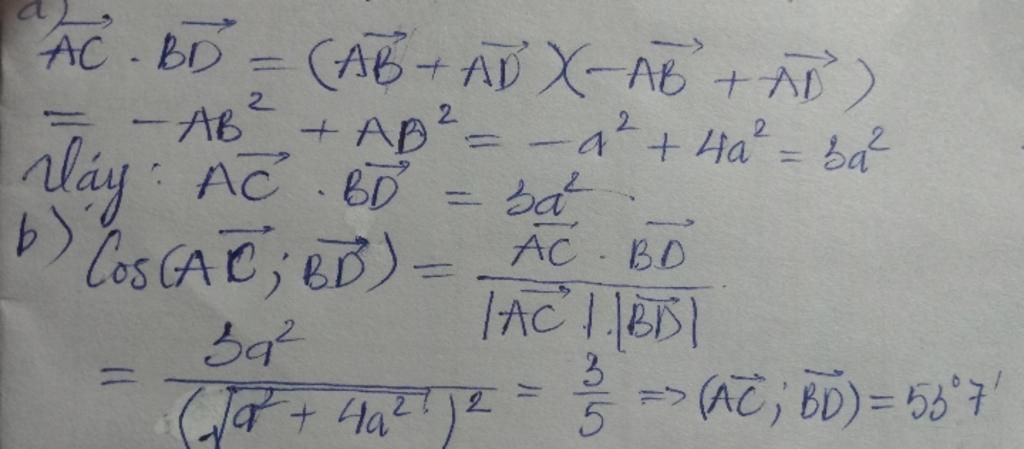 a)
AC . BD = (AB + AD)(-AB + AD)
= -AB² + AD² = -a² + 4a² = 3a²
Vậy: AC . BD = 3a²
b) Cos(AC; BD) = AC . BD / |AC|.|BD|
= 3a² / (√a² + 4a²)² = 3/5 => (AC; BD) = 53°7'